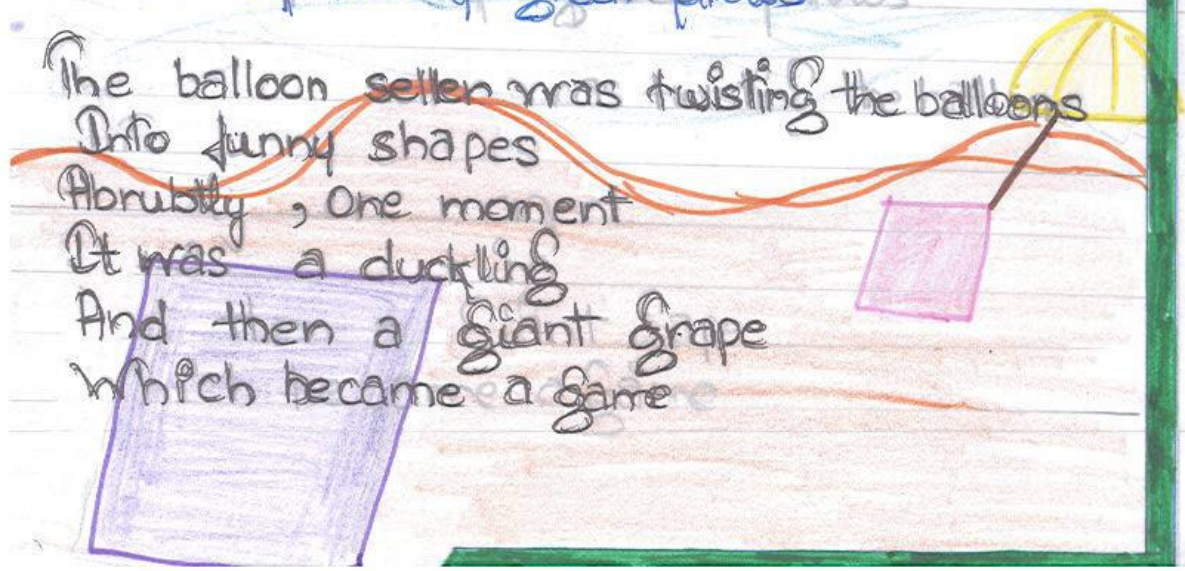 The balloon seller was twisting the balloons
Into funny shapes
Abrubtly , One moment
It was a duckling
And then a giant grape
Which became a game